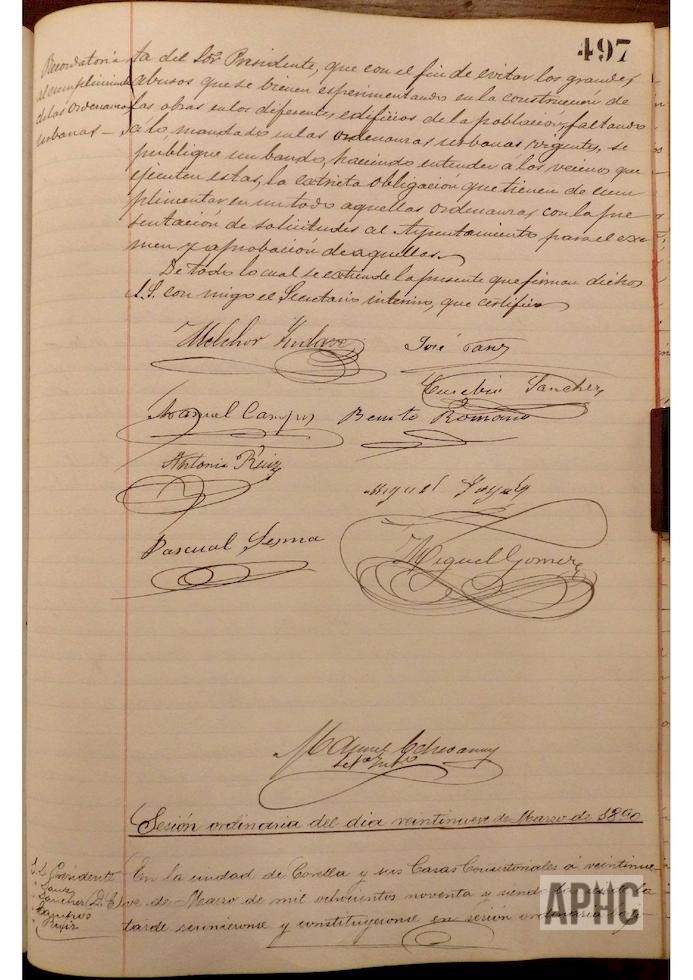 497
Recordatorio
al cumplimiento
de las Ordenanzas
urbanas —
ta del Sor. Presidente, que con el fin de evitar los grandes
abusos que se vienen esperimentando en la construcción de
las obras en los diferentes edificios de la población, faltando
á lo mandado en las ordenanzas urbanas vigentes, se
publique un bando, haciendo entender á los vecinos que
ejecuten estas, la estricta obligación que tienen de cum-
plimentar en un todo aquellas ordenanzas con la pre-
sentación de solicitudes al Ayuntamiento para el exa-
men y aprobación de aquellas.
De todo lo cual se extiende la presente que firman dichos
S.S. con migo el Secretario interino, que certifico
Melchor
José Sanz
Eusebio Sanchez
Manuel Campos
Benito Romano
Antonio Ruiz
Miguel
Pascual Sesma
Miguel Gomez
Manuel Echevarria
Sesión ordinaria del dia veintinueve de Marzo de 1890
S.S. Presidente
Sanz
Sanchez
Campos
Ruiz
En la ciudad de Corella y sus Casas Consistoriales á veintinue-
ve de Marzo de mil ochocientos noventa y siendo
tarde reunieronse y constituyeronse en sesión ordinaria
APHC